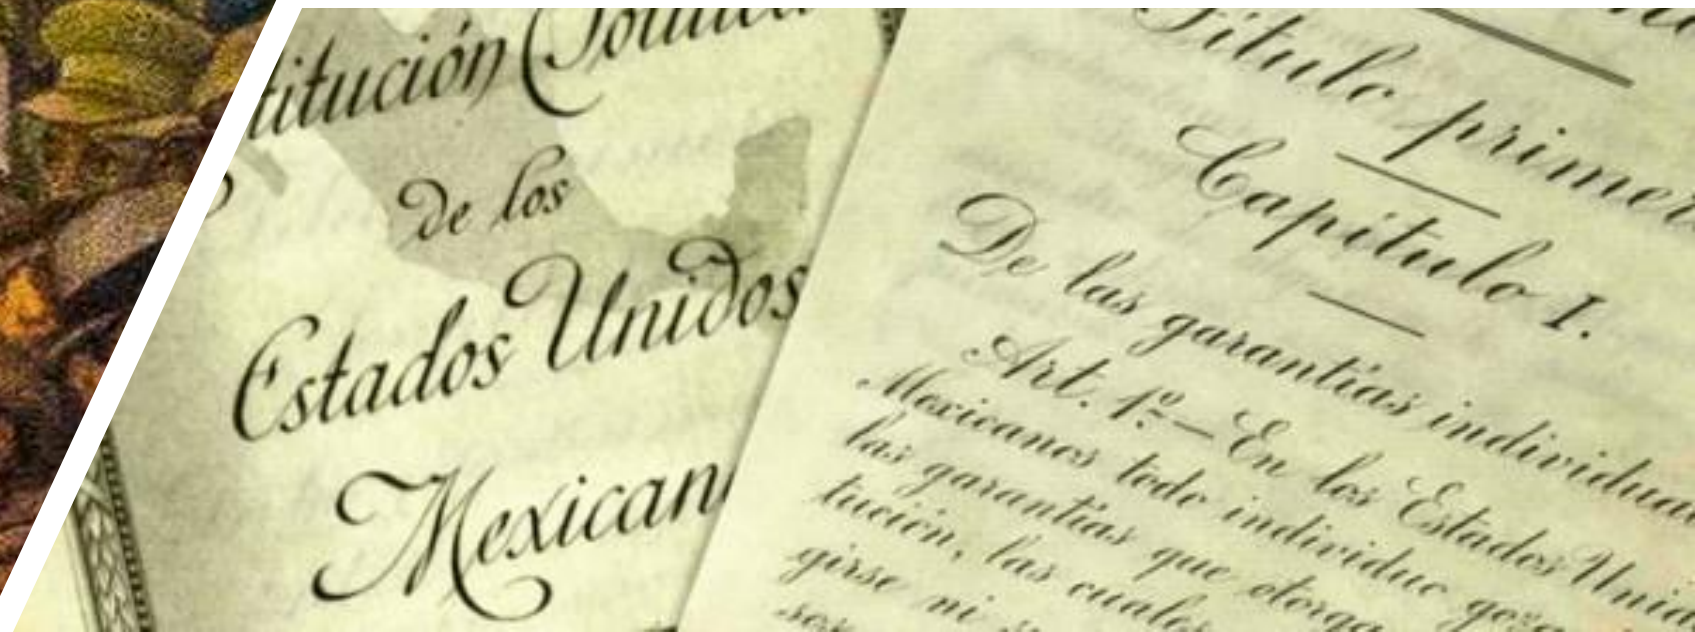 titución Política
de los
Estados Unidos
Mexican
Título primer
Capítulo I.
De las garantías individua
Art. 1º—En los Estados Unid
Mexicanos todo individuo goza
las garantías que otorga
tución, las cuales
girse ni